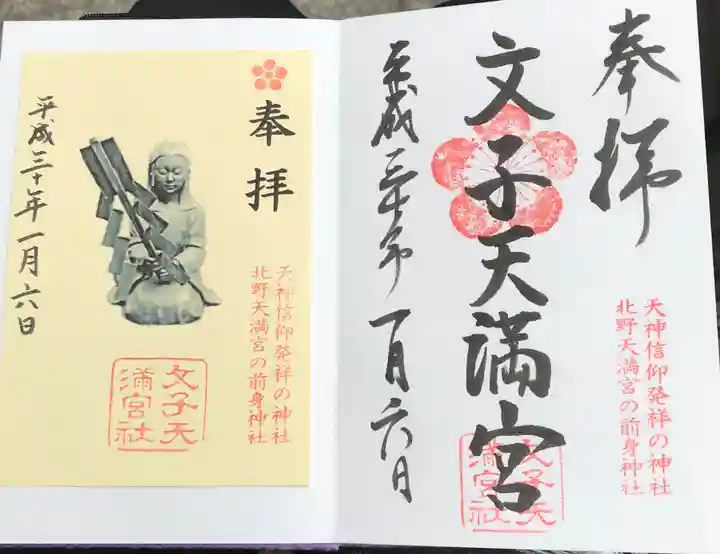 奉拝
文子天満宮
平成三十年一月六日
天神信仰発祥の神社
北野天満宮の前身神社
文子天
満宮社
奉拝
平成三十年一月六日
天神信仰発祥の神社
北野天満宮の前身神社
文子天
満宮社